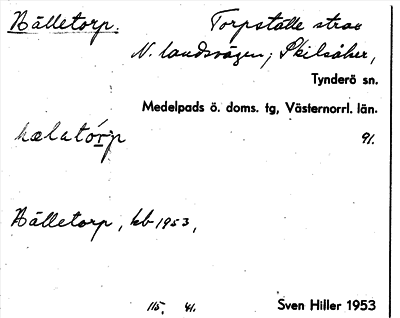 Källetorp. Torpställe strax
N. landsvägen; Skilsåker,
Tynderö sn.
Medelpads ö. doms. tg, Västernorrl. län.
kælatórp 91.
Källetorp, kb 1953,
115. 41. Sven Hiller 1953